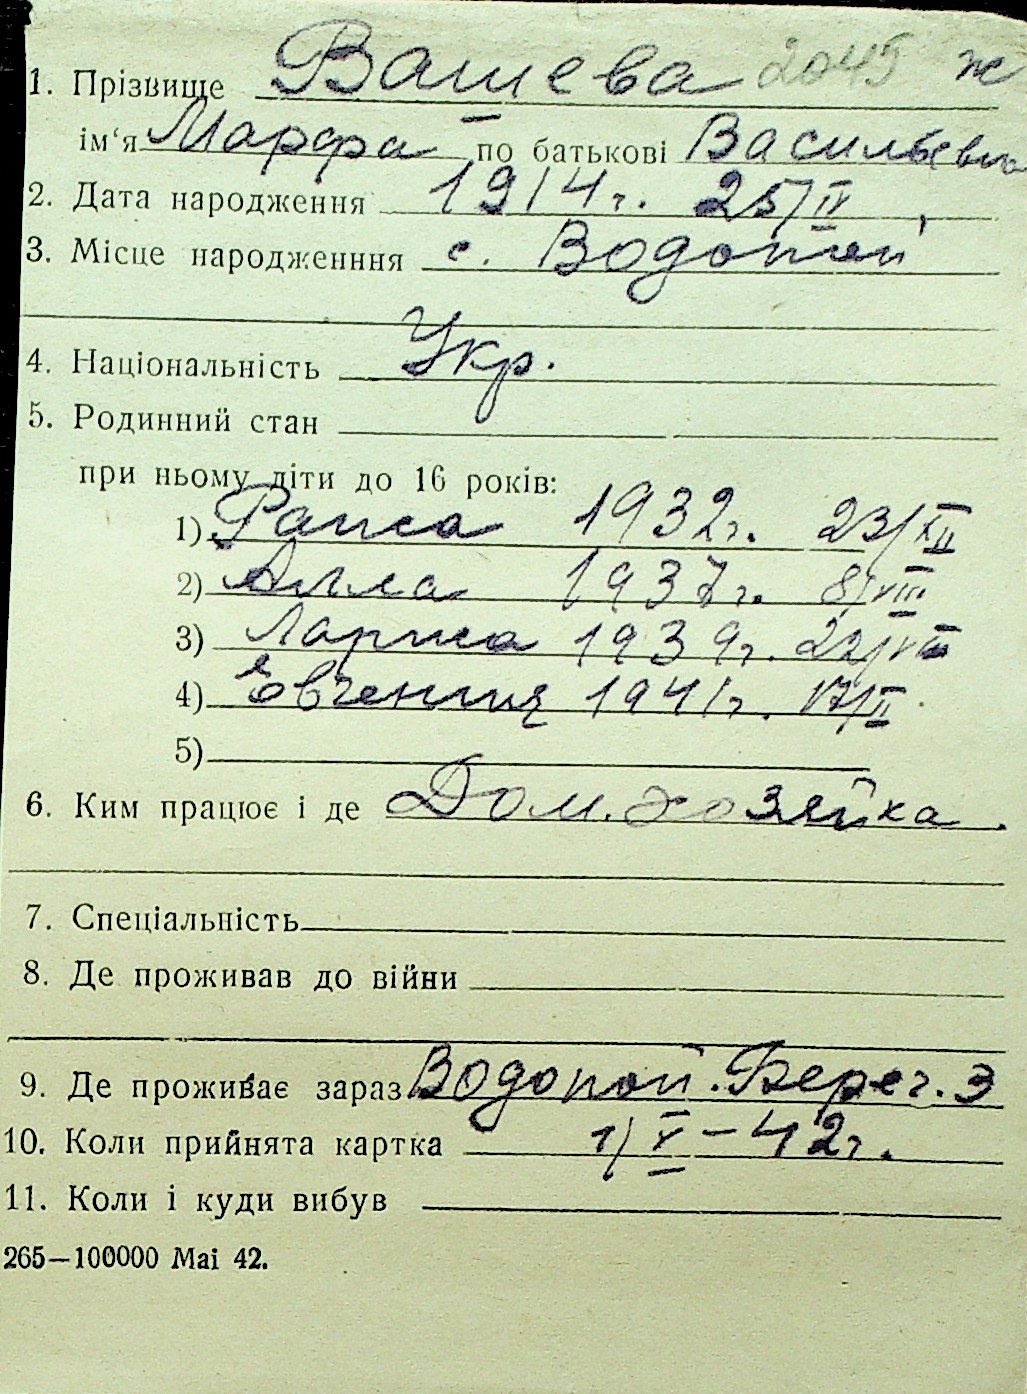 1. Прізвище Вашева 2045 ж
ім‘я Марфа по батькові Васильевна
2. Дата народження 1914 г. 25/IV
3. Місце народженння с. Водопой
4. Національність Укр.
5. Родинний стан
при ньому діти до 16 років:
1) Раиса 1932 г. 23/XII
2) Алла 1937 г. 8/VIII
3) Лариса 1939 г.
4) Евгения 1941 г. 17/II
5)
6. Ким працює і де Дом. хозяйка.
7. Спеціальність
8. Де проживав до війни
9. Де проживає зараз Водопой. Берег. 3
10. Коли прийнята картка 1/V – 42 г.
11. Коли і куди вибув
265—100000 Mai 42.